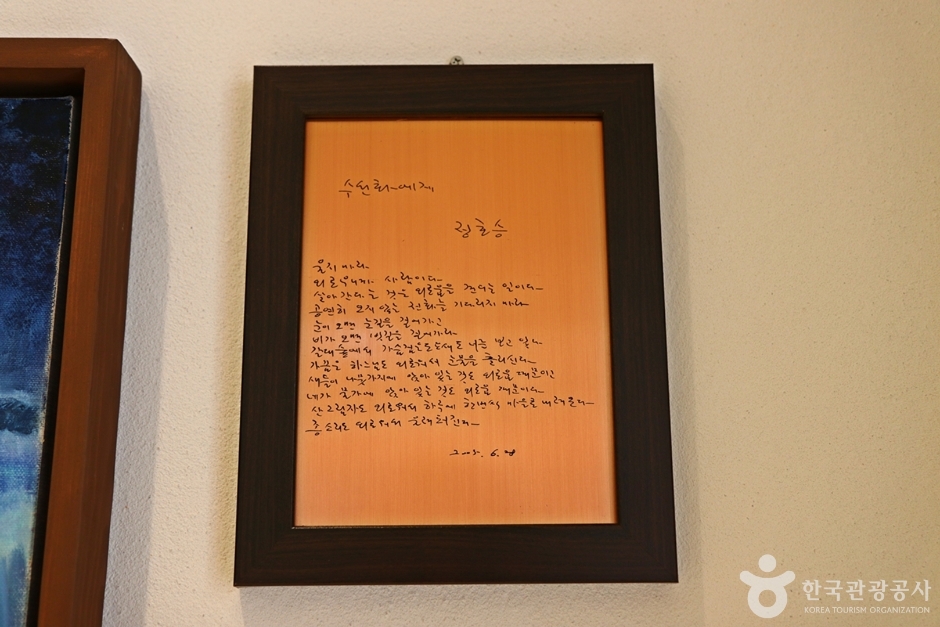 수선화에게
정호승
울지 마라
외로우니까 사람이다
살아간다는 것은 외로움을 견디는 일이다
공연히 오지 않는 전화를 기다리지 마라
눈이 오면 눈길을 걸어가고
비가 오면 빗길을 걸어가라
갈대숲에서 가슴검은도요새도 너를 보고 있다
가끔은 하느님도 외로워서 눈물을 흘리신다
새들이 나뭇가지에 앉아 있는 것도 외로움 때문이고
네가 물가에 앉아 있는 것도 외로움 때문이다
산그림자도 외로워서 하루에 한번씩 마을로 내려온다
종소리도 외로워서 울려퍼진다
2005. 6.
한국관광공사
KOREA TOURISM ORGANIZATION